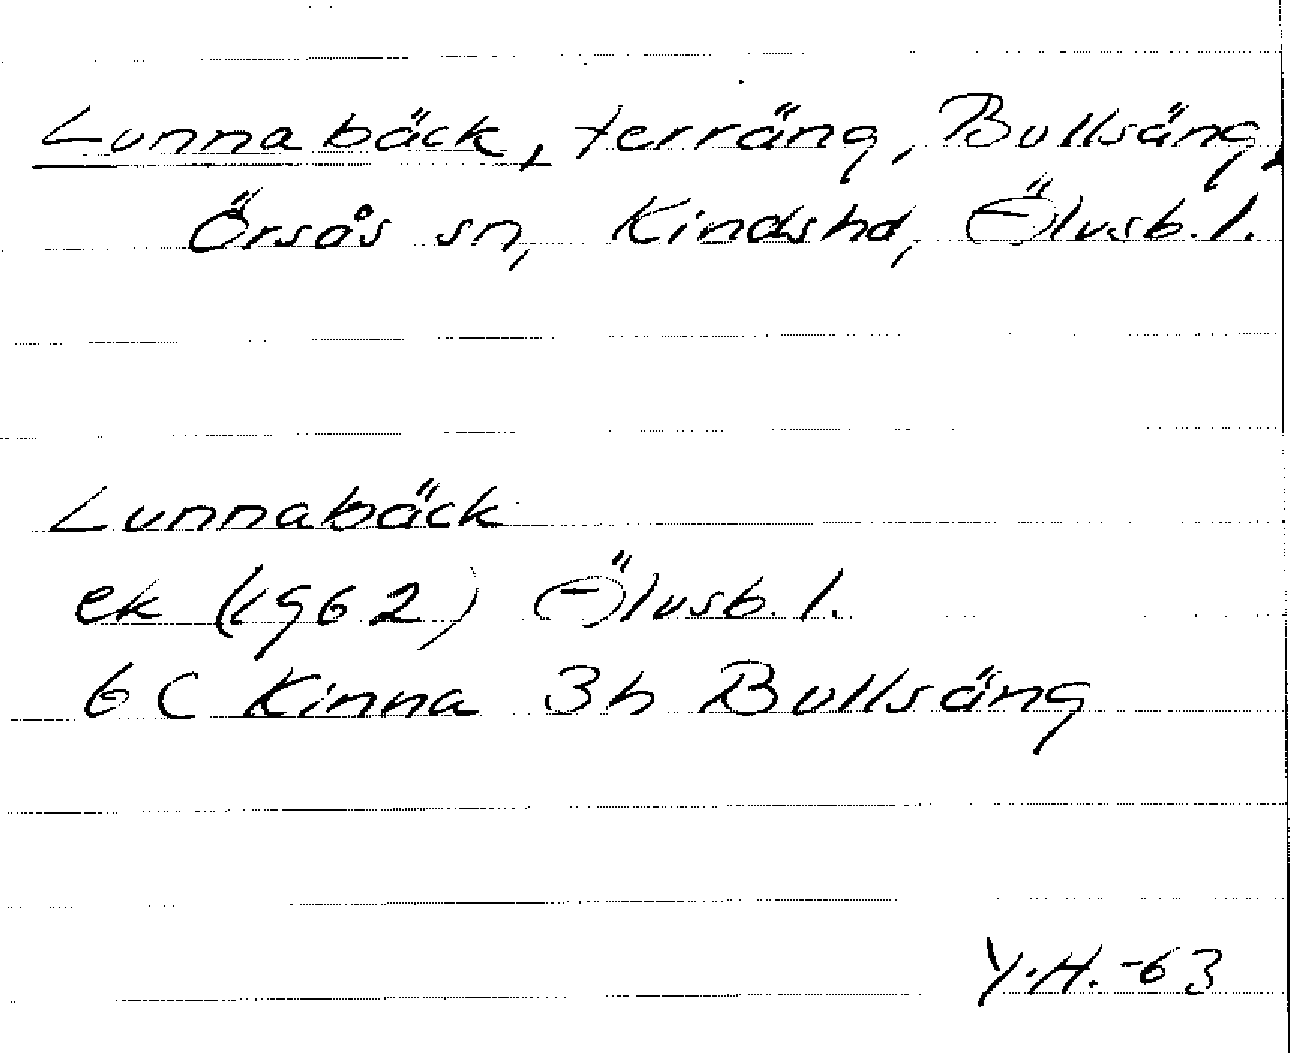 Lunnabäck, terräng, Bullsäng,
Örsås sn, Kinds hd, Älvsb. l.
Lunnabäck
ek (1962) Älvsb. l.
6 C Kinna 3h Bullsäng
Y.H. -63